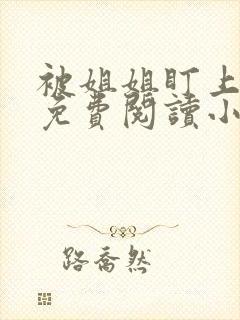 被姐姐盯上
免費閱讀小
路喬然